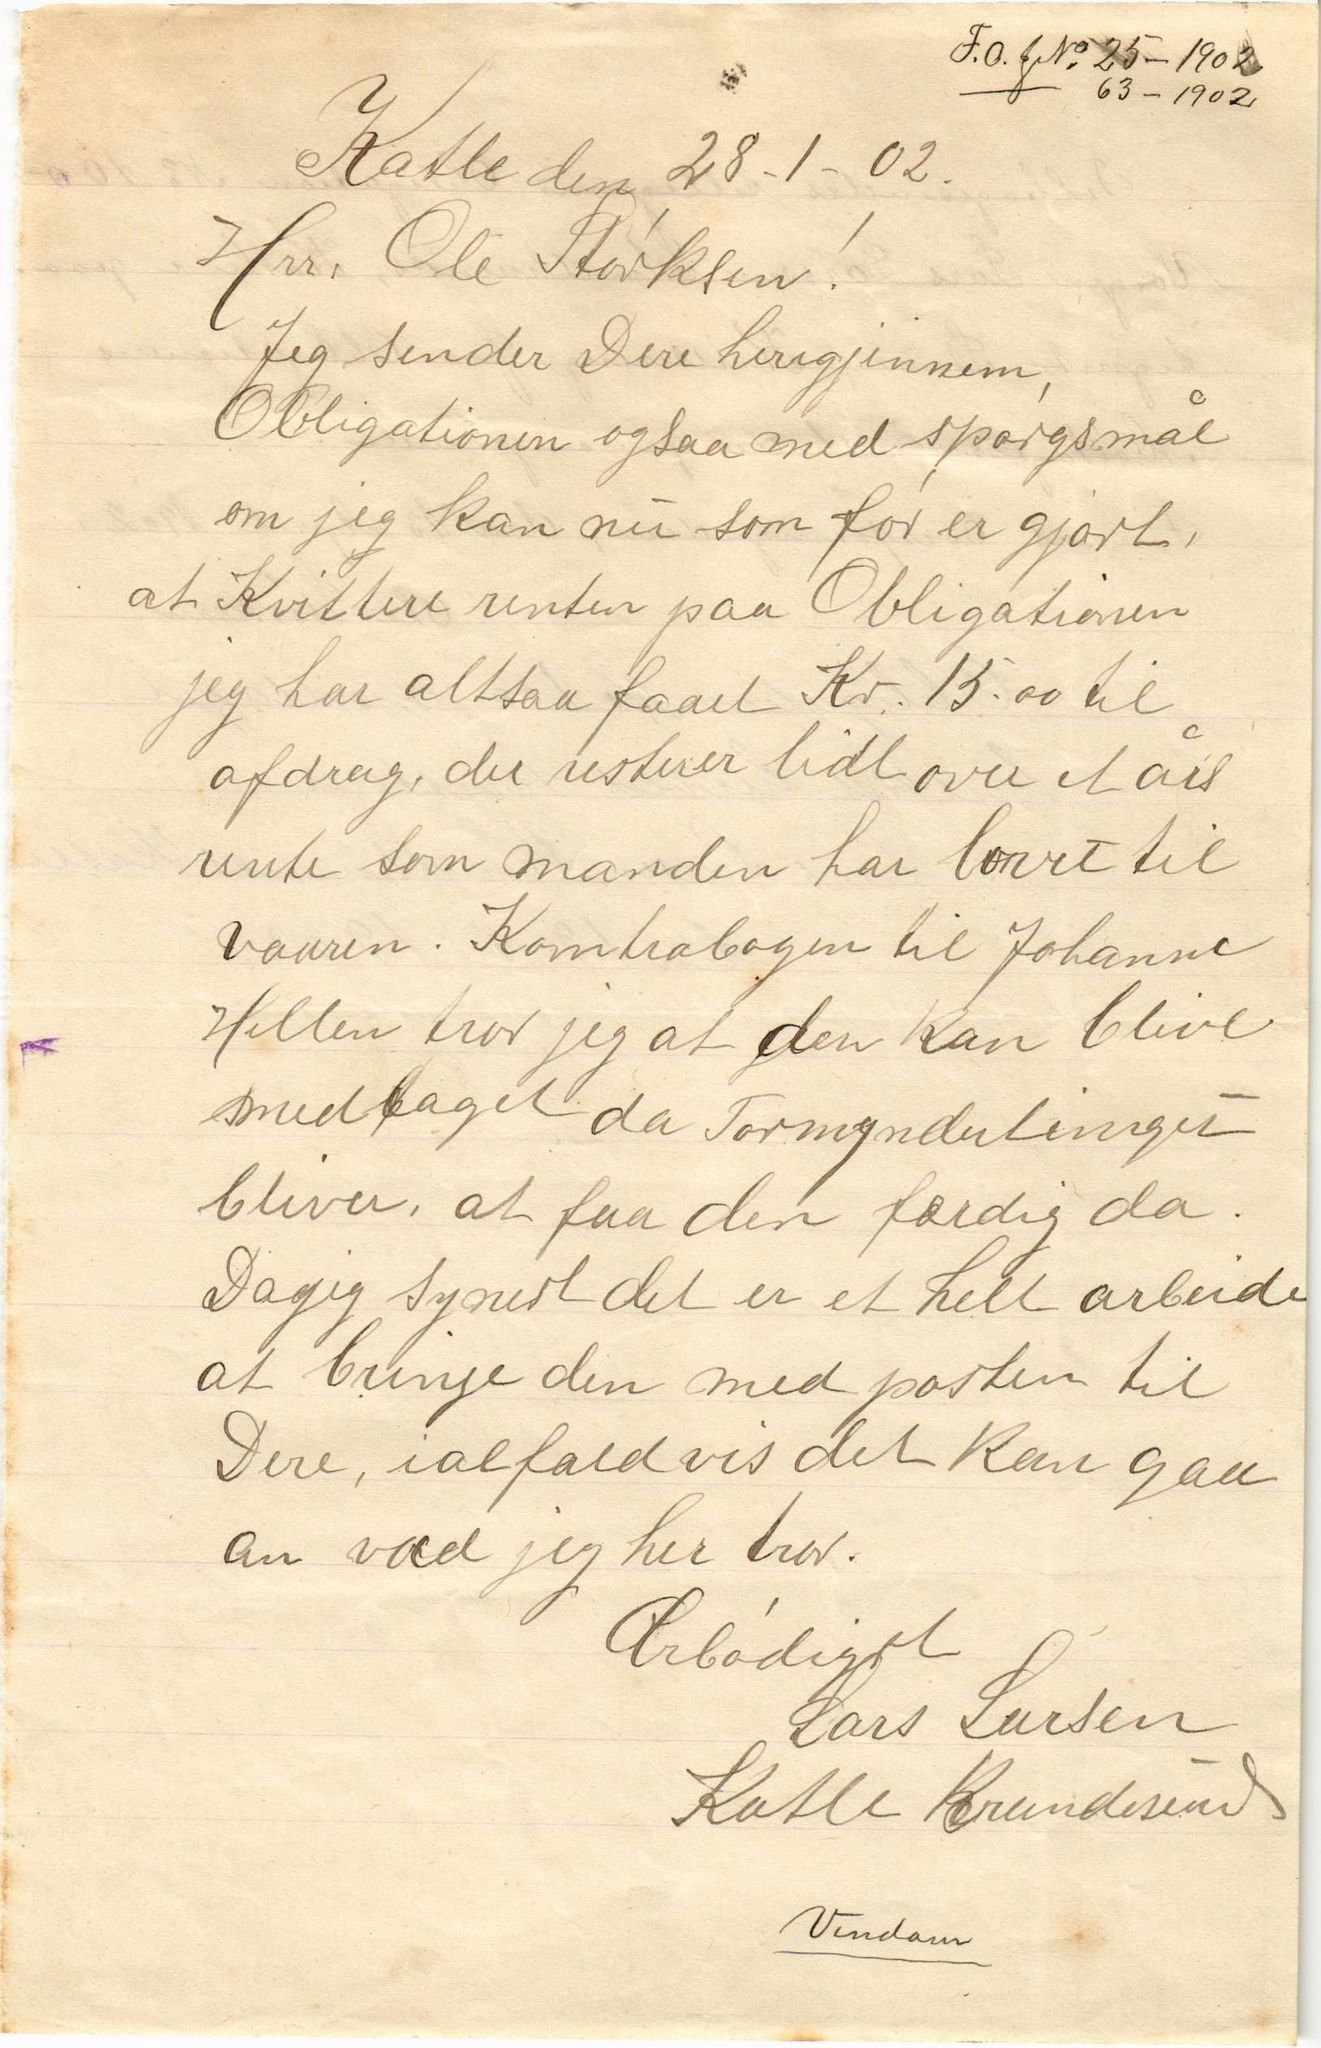 F.O. J No. 25 - 1902
63 - 1902
Katle den 28 - 1 - 02.
Hrr. Ole Størksen!
Jeg sender Dere herigjinnem,
Obligationen ogsaa med spórgsmål
om jeg kan nu som fór er gjórt,
at Kvittere renten paa Obligationen
jeg har altsaa faaet Kr. 15.00 til
afdrag, der resterer lidt over et års
rente som manden har lovet til
vaaren. Kontrabogen til Johanne
Hillen tror jeg at den kan blive
medtaget da Formyndertinget
bliver, at faa den færdig da.
Dog jeg synest det er et helt arbeide
at bringe den med posten til
Dere, ialfald vis det kan gaa
an vad jeg her tror.
Ærbódigst
Lars Larsen
Katle Brandesund
Vendom